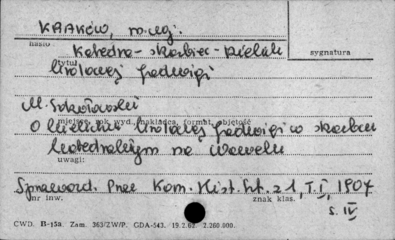 KRAKÓW, m. woj.
hasło
Katedra - skarbiec - kielich
sygnatura
tytuł
królowej Jadwigi
M. Sokołowski
miejsce, rok wyd., nakładca, format, objętość
O kielichu królowej Jadwigi w skarbcu
katedralnym na Wawelu
uwagi:
Sprawozd. Prac Kom. Hist. Szt. z 1, T. I, 1907
nr inw. znak klas.
s. IV
CWD. B-15a. Zam. 363/ZW/P. GDA-543. 19.2.62. 2.260.000.